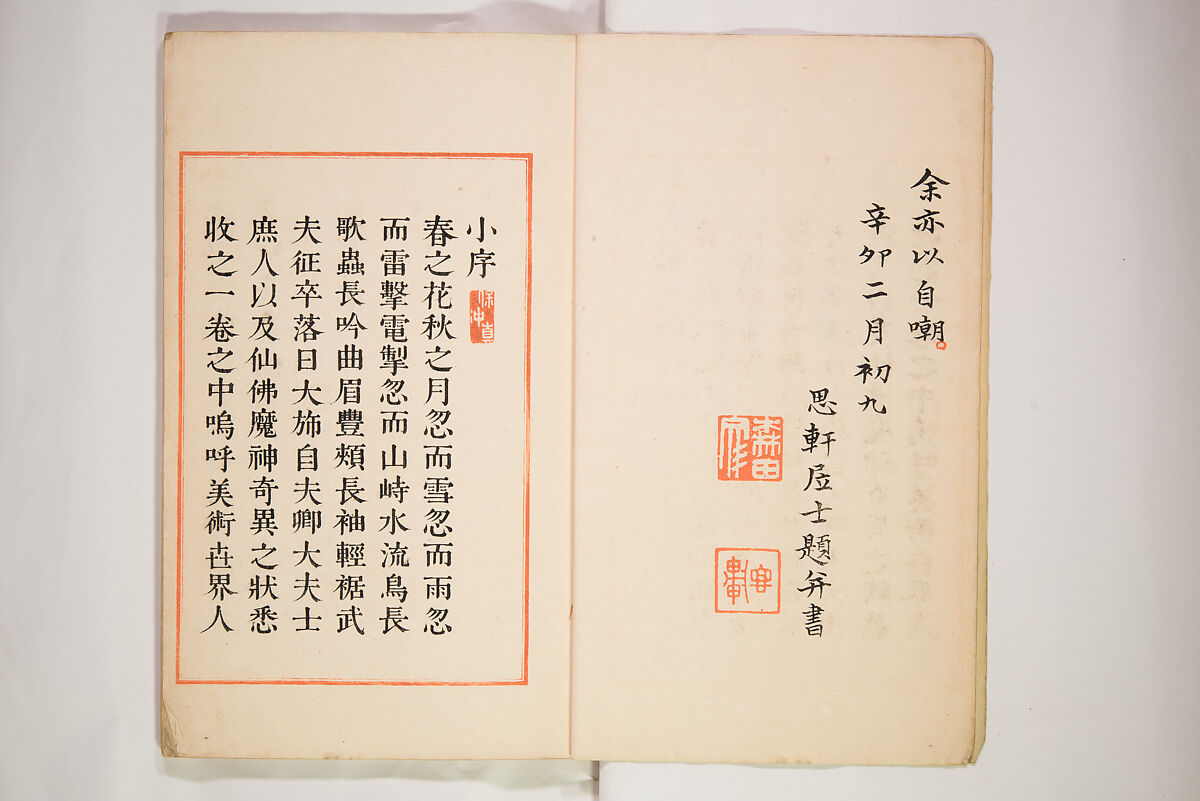 余亦以自嘲
辛卯二月初九
思軒居士題并書
森田
小序
春之花秋之月忽而雪忽而雨忽
而雷擊電掣忽而山峙水流鳥長
歌蟲長吟曲眉豐頰長袖輕裾武
夫征卒落日大斾自夫卿大夫士
庶人以及仙佛魔神奇異之狀悉
收之一卷之中嗚呼美術世界人